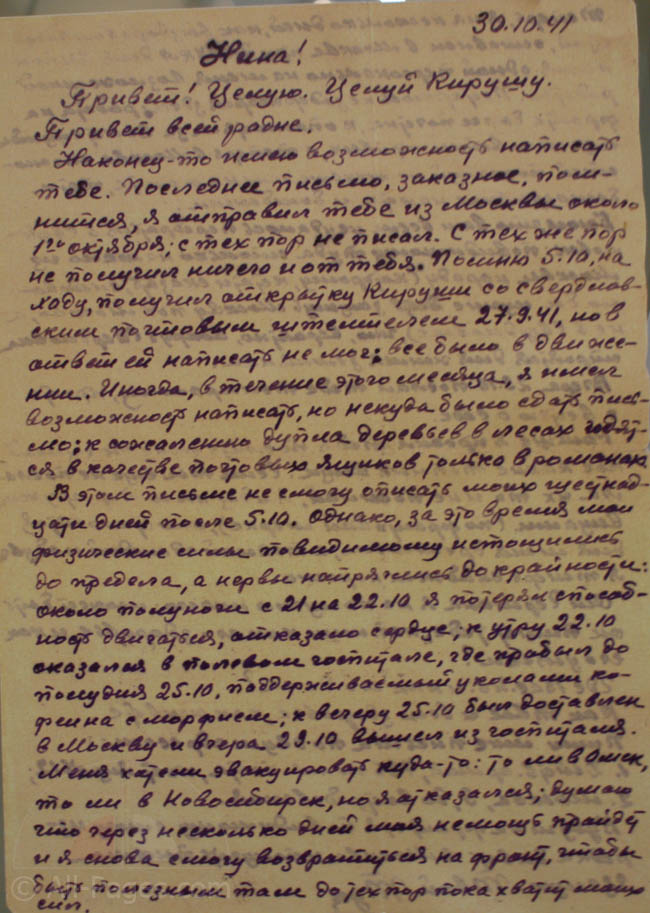 30.10.41
Нина!
Привет! Целую. Целуй Кирушу.
Привет всей родне.
Наконец-то имею возможность написать
тебе. Последнее письмо, заказное, пом-
нится, я отправил тебе из Москвы около
1го октября; с тех пор не писал. С тех же пор
не получил ничего и от тебя. Помню 5.10, на
ходу, получил открытку Кируши со свердлов-
ским почтовым штемпелем 27.9.41, но в
ответ ей написать не мог: все было в движе-
нии. Иногда, в течение этого месяца, я имел
возможность написать, но некуда было сдать пись-
мо: к сожалению дупла деревьев в лесах годят-
ся в качестве почтовых ящиков только в романах
В этом письме не смогу описать моих шестнад-
цати дней после 5.10. Однако, за это время мои
физические силы повидимому истощились
до предела, а нервы напряглись до крайности:
около полуночи с 21 на 22.10 я потерял способ-
ность двигаться, отказало сердце; к утру 22.10
оказался в полевом госпитале, где пробыл до
полудня 25.10, поддерживаемый уколами ко-
феина с морфием; к вечеру 25.10 был доставлен
в Москву и вчера 29.10 вышел из госпиталя.
Меня хотели эвакуировать куда-то: то ли в Омск,
то ли в Новосибирск, но я отказался; думаю
что через несколько дней моя немощь пройдет
и я снова смогу возвратиться на фронт, чтобы
быть полезным там до тех пор пока хватит моих
сил.